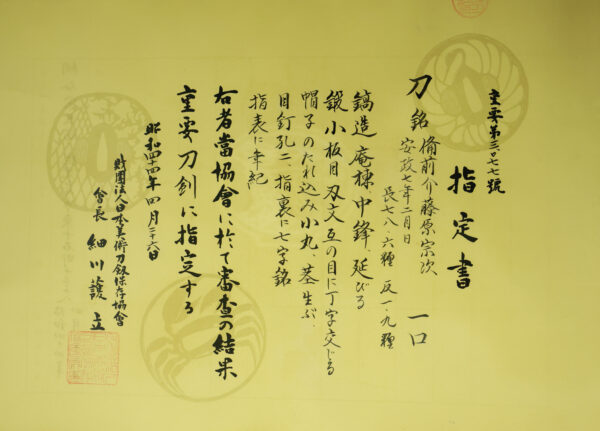 重要第三〇七七號
指定書
刀 銘 備前介藤原宗次 一口
安政七年二月日
長七八・六糎、反一・九糎
鎬造、庵棟、中鋒、延びる
鍛小板目刃文互の目に丁字交じる
帽子のたれ込み小丸、茎生ぶ、
目釘孔二、指裏に七字銘
指表に年紀
右者當協會に於て審査の結果
重要刀剣に指定する
昭和四十四年四月二十六日
財團法人日本美術刀劔保存協會
會長 細川護立